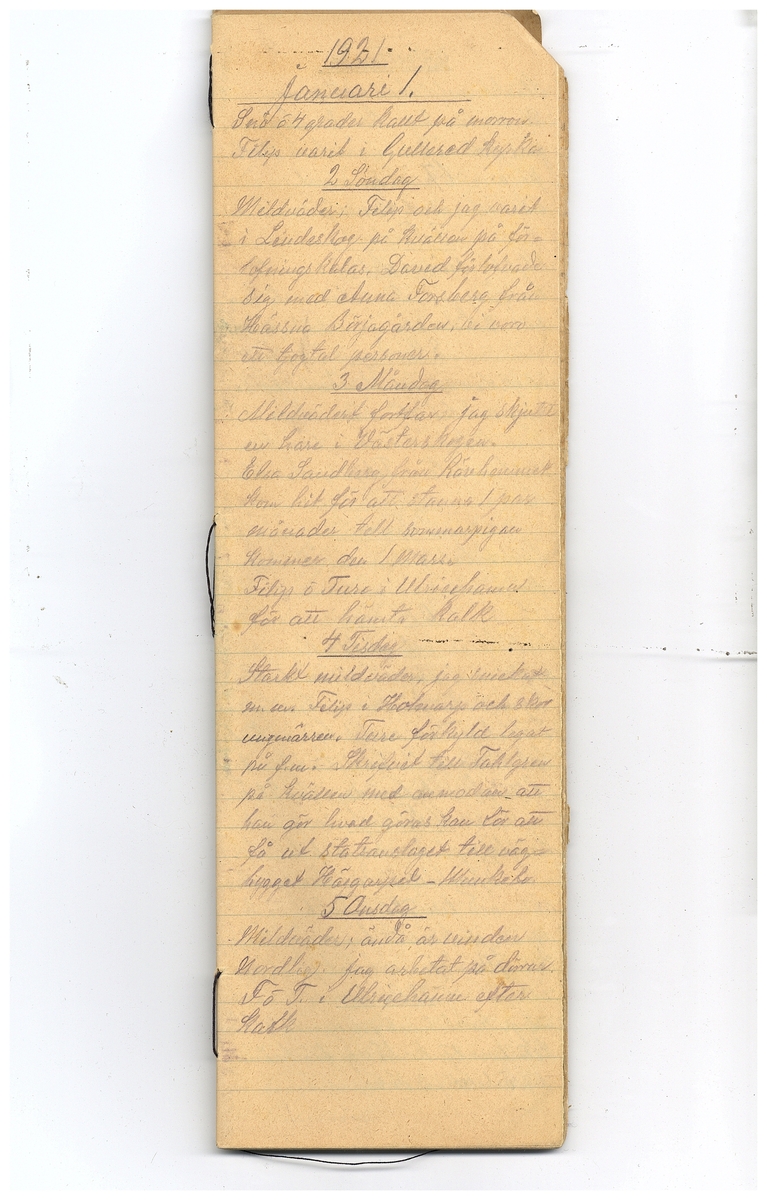 1921
Januari 1.
Snö o 4 grader kallt på morron
Filip varit i Gullered
2 Söndag
Mildväder, Filip och jag varit
i Lindeskog på kvällen på för-
lofningskalas, David förlofvade
sig med Anna Forsberg från
Hässna Börjagården, vi voro
ett tjogtal personer.
3 Måndag
Mildvädert fortfar, jag skjutit
en hare i Västerskogen.
Elsa Sandberg från
kom hit för att stanna 1 par
månader till sommarpigan
kommer den 1 Mars.
Filip o Ture i Ulricehamn
för att hämta kalk
4 Tisdag
Starkt mildväder, jag snickrat
m. m. Filip i Holmarp och skor
ungmärren. Ture förkyld legat
på f.m. Skrifvit till Tahlgren
på kvällen med anmodan att
han gör hvad göras kan för att
få ut statsanslaget till väg-
bygget
5 Onsdag
Mildväder, ändå är vinden
Nordlig. jag arbetat på dörrar.
F o T. i Ulricehamn efter
Kalk